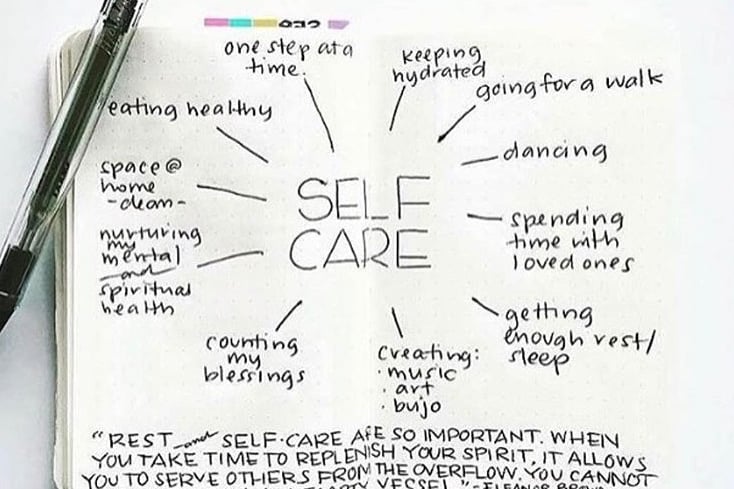 one step at a
time.
keeping
hydrated
going for a walk
eating healthy
dancing
space @
home
-clean-
SELF
CARE
spending
time with
loved ones
nurturing
my
mental
and
spiritual
health
getting
enough rest/
sleep
counting
my
blessings
creating:
· music
· art
· bujo
"REST and SELF-CARE ARE SO IMPORTANT. WHEN
YOU TAKE TIME TO REPLENISH YOUR SPIRIT, IT ALLOWS
YOU TO SERVE OTHERS FROM THE OVERFLOW. YOU CANNOT
VESSEL."